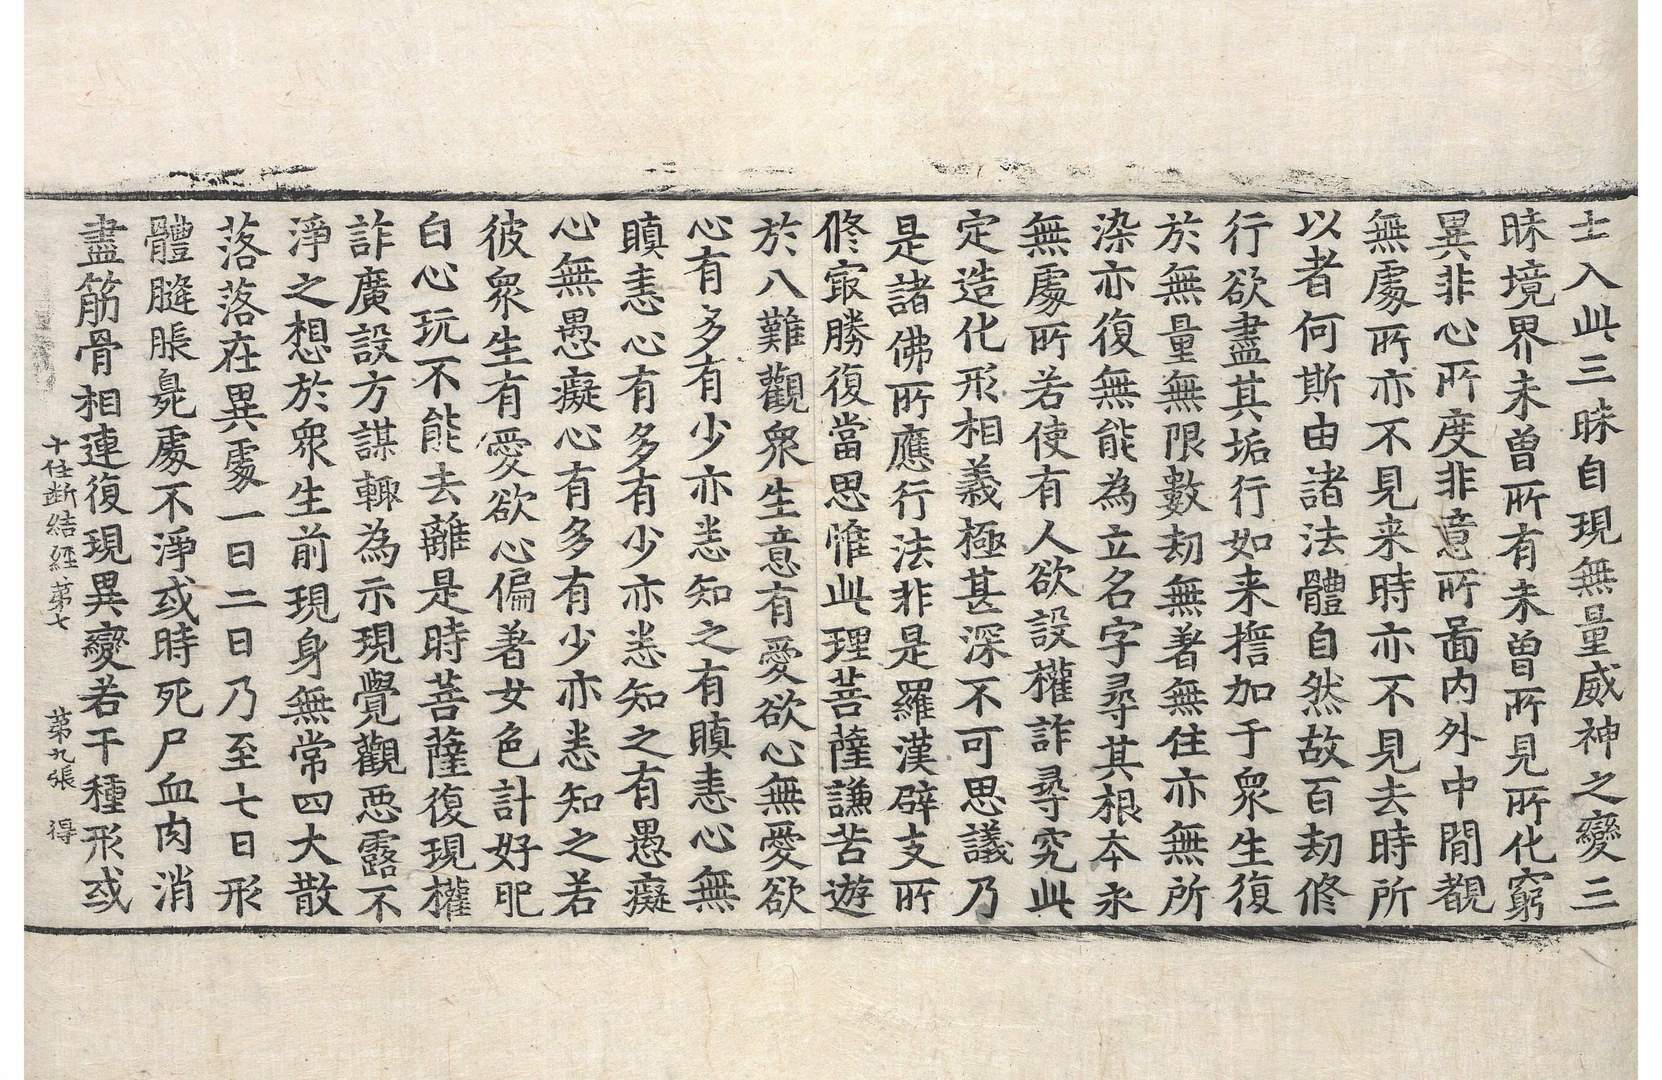 士入此三昧自現無量威神之變三
昧境界未曾所有未曾所見所化窮
異非心所度非意所啚內外中閒覩
無處所亦不見来時亦不見去時所
以者何斯由諸法體自然故百劫修
行欲盡其垢行如来揸加于衆生復
於無量無限數劫無著無住亦無所
染亦復無能為立名字尋其根夲永
無處所若使有人欲設權詐尋究此
定造化形相義極甚深不可思議乃
是諸佛所應行法非是羅漢辟支所
修㝡勝復當思惟此理菩薩謙苦遊
於八難觀衆生意有愛欲心無愛欲
心有多有少亦悉知之有瞋恚心無
瞋恚心有多有少亦悉知之有愚癡
心無愚癡心有多有少亦悉知之若
彼衆生有愛欲心偏著女色計好肥
白心玩不能去離是時菩薩復現權
詐廣設方謀輙為示現覺觀惡露不
淨之想於衆生前現身無常四大散
落落在異處一日二日乃至七日形
體膖脹臰處不淨或時死尸血肉消
盡筋骨相連復現異變若干種形或
十住斷結經第七 第九張 得